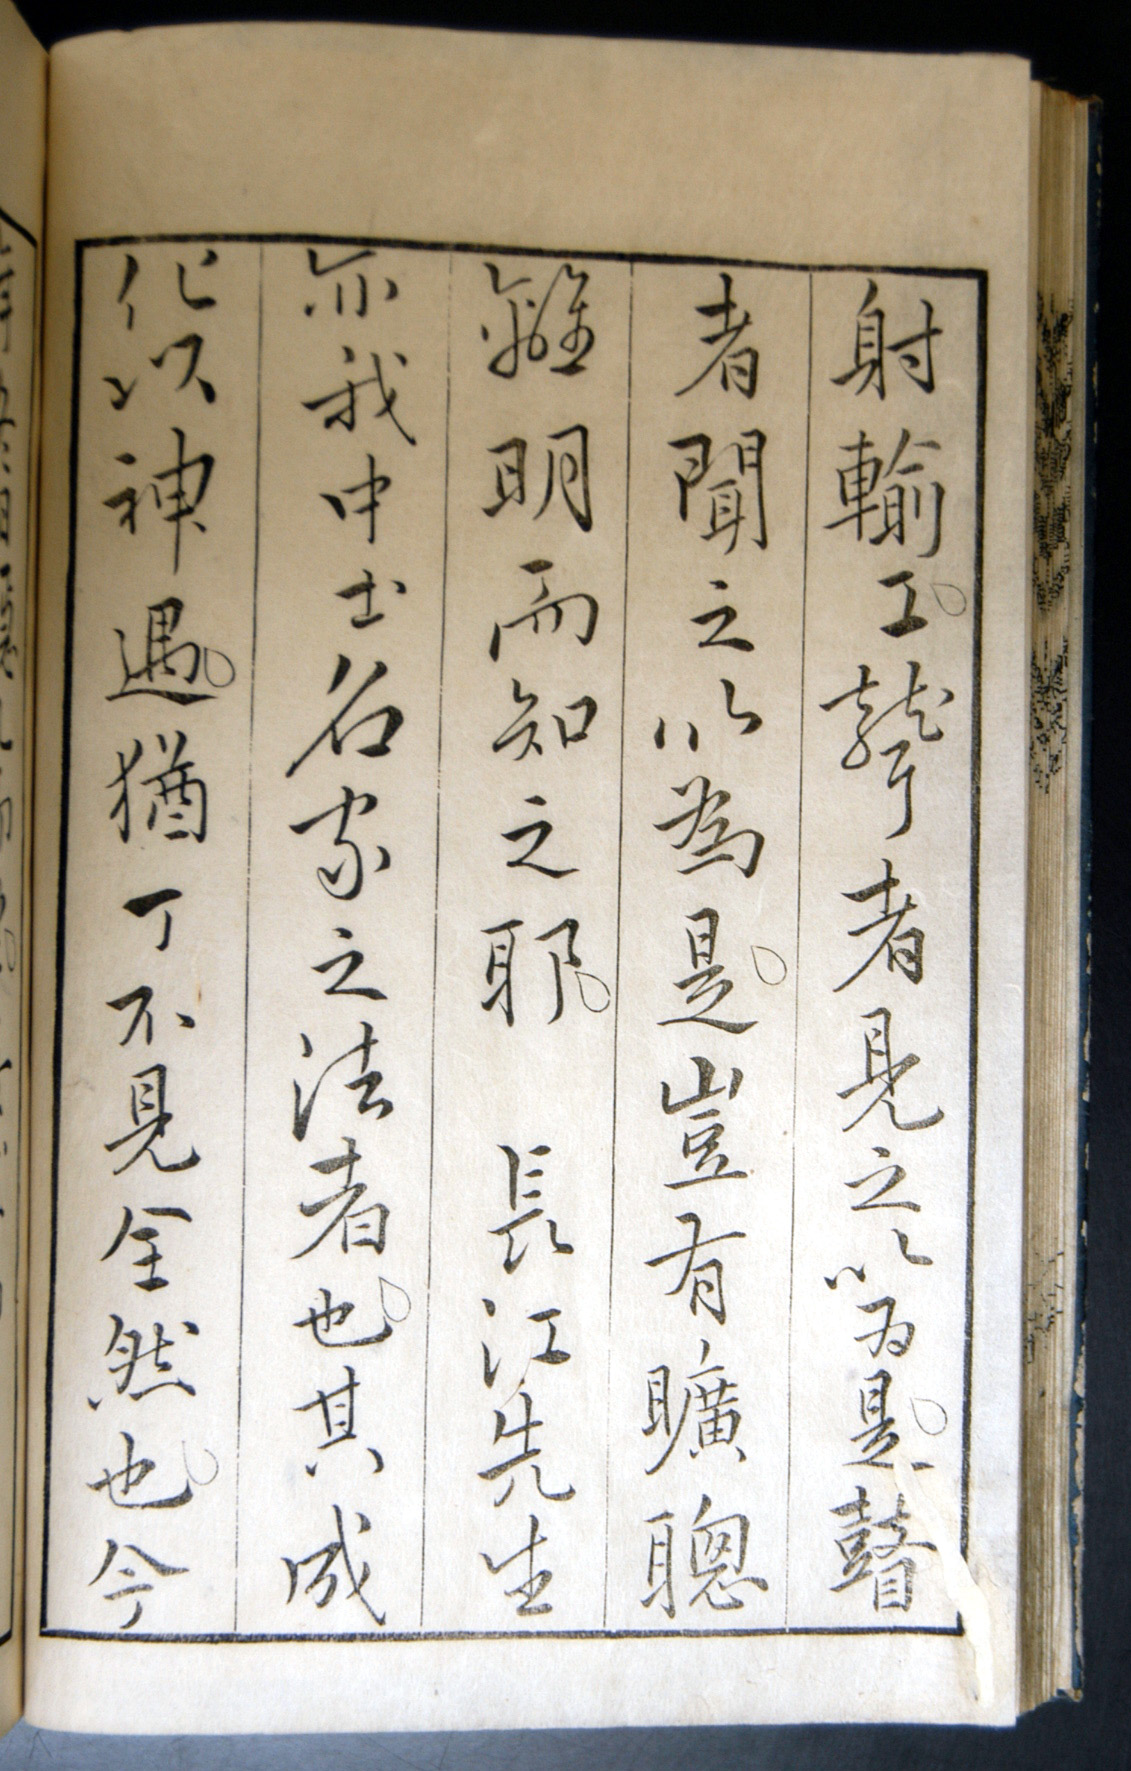 射輸工聾者見之以為是瞽
者聞之以為是豈有曠聰
離明而知之耶　長江先生
亦我中士名家之法者也其成
化以神遇猶丁不見全然也今